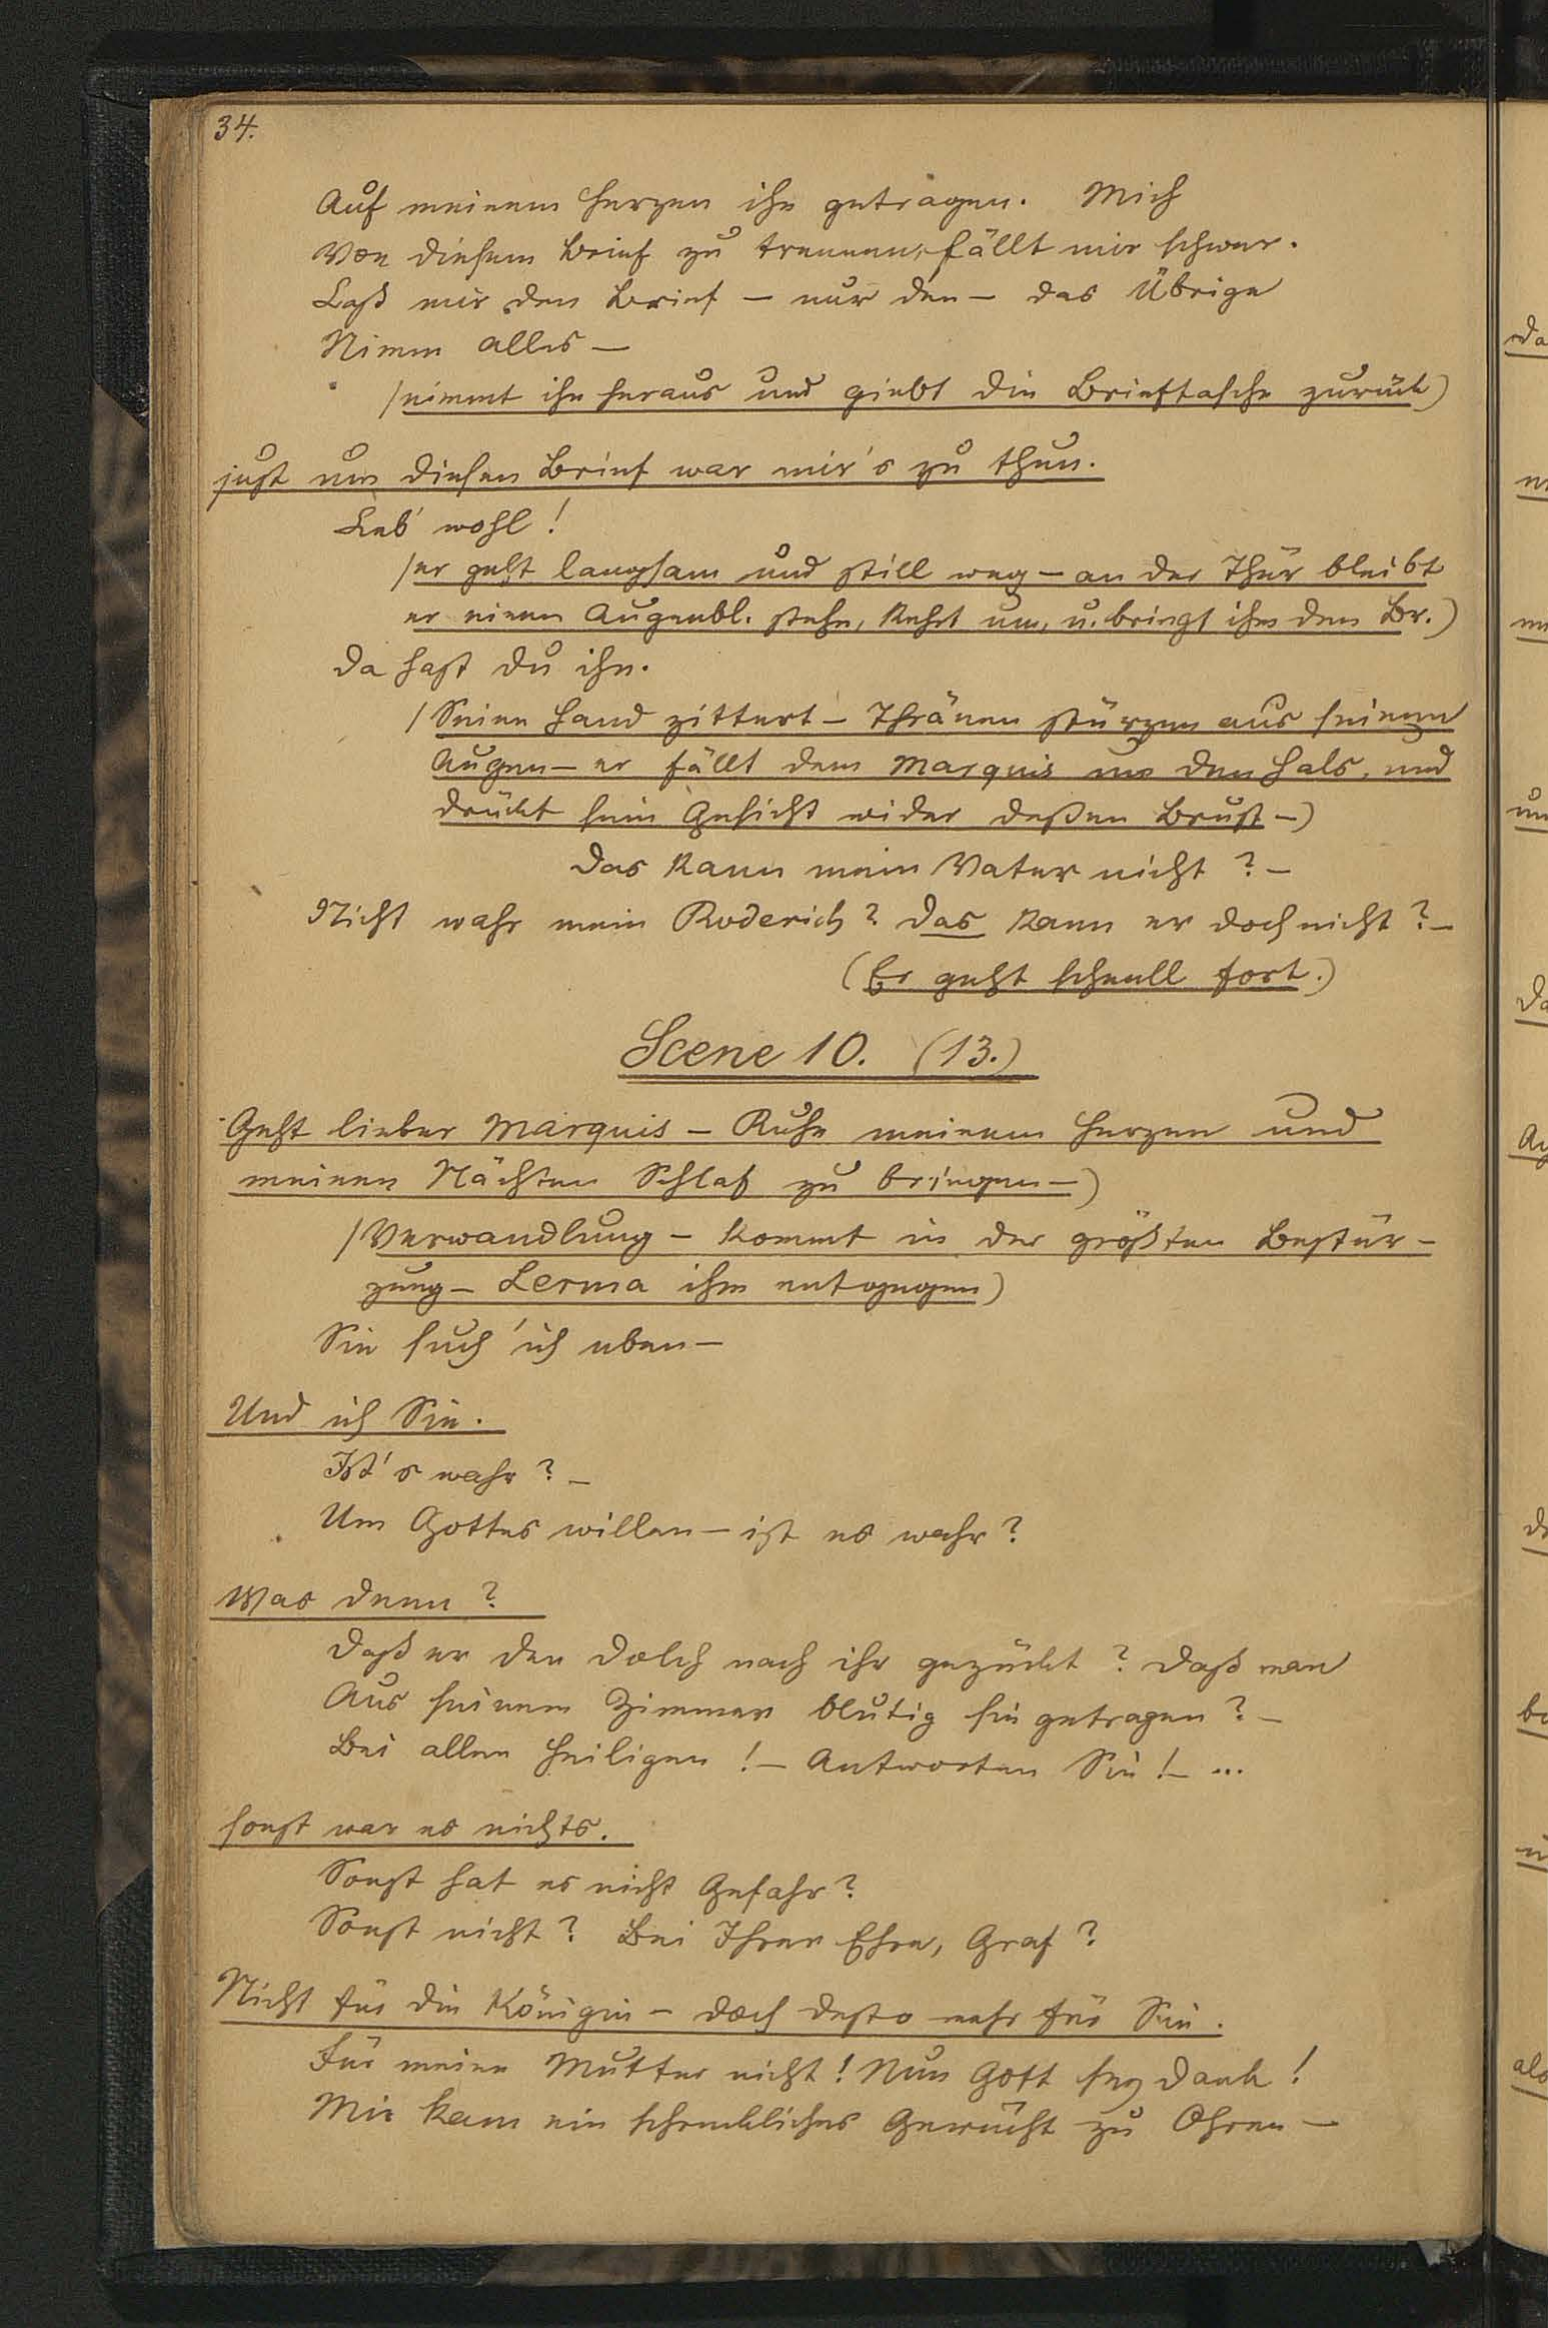 34.
Auf meinem Herzen ihn getragen. Mich
Von diesem Brief zu trennen, fällt mir schwer.
Laß mir den Brief — nur den — das Übrige
Nimm alles —
/nimmt ihn heraus und giebt die Brieftasche zurück)
just um diesen Brief war mir's zu thun.
Leb' wohl!
/er geht langsam und still weg — an der Thür bleibt
er einen Augenbl. stehn, kehrt um, u. bringt ihm den Br.)
Da hast du ihn.
/Seine Hand zittert — Thränen stürzen aus seinen
Augen — er fällt dem Marquis um den Hals, und
drückt sein Gesicht wider deßen Brust —)
Das kann mein Vater nicht? —
Nicht wahr mein Roderich? Das kann er doch nicht? —
(Er geht schnell fort.)
Scene 10. (13.)
Geht lieber Marquis — Ruhe meinem Herzen und
meinen Nächten Schlaf zu bringen —)
/Verwandlung — kommt in der größten Bestür-
zung — Lerma ihm entgegen)
Sie such' ich eben —
Und ich Sie.
Ist's wahr? —
Um Gottes willen — ist es wahr?
Was denn?
Daß er den Dolch nach ihr gezückt? Daß man
Aus seinem Zimmer blutig sie getragen? —
Bei allen Heiligen! — Antworten Sie! — ...
sonst war es nichts.
Sonst hat es nicht Gefahr?
Sonst nicht? Bei Ihrer Ehre, Graf?
Nicht für die Königin — doch desto mehr für Sie.
Für meine Mutter nicht! Nun Gott sey Dank!
Mir kam ein schreckliches Gerücht zu Ohren —